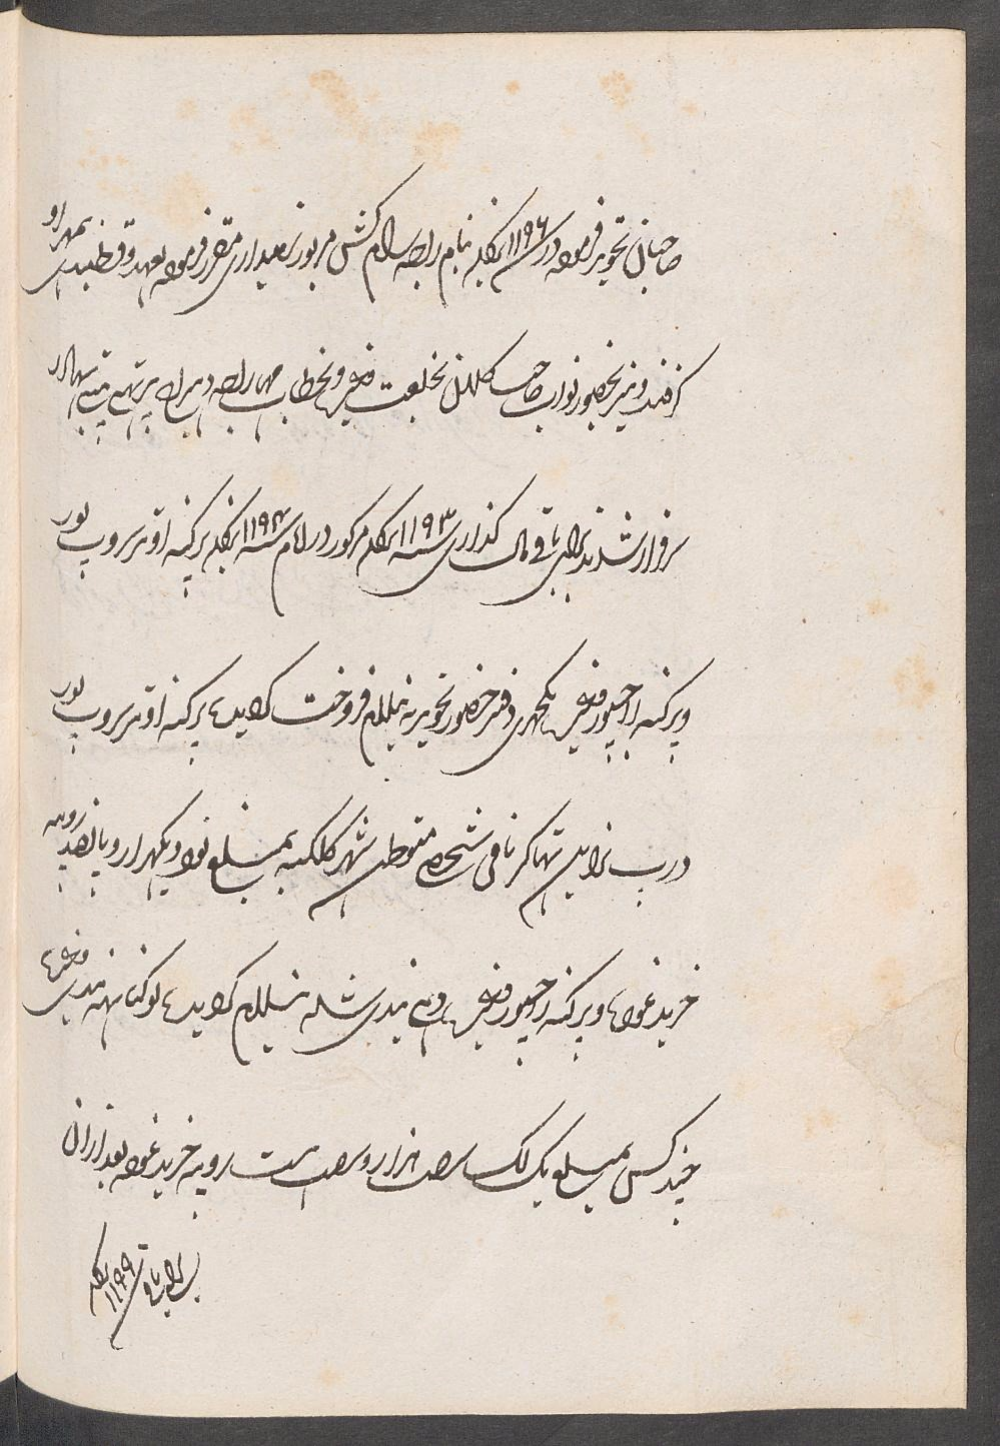 صاحبان تجویز فرموده در سنه ۱۱۹۶ بنگله بنام راجه سرام کشن مزبور زمیداری مقرر فرموده بعهد و قسطبندی بمهر او
گرفتند و نیز بحضور نواب صاحب کلان بخلعت و بخطاب مهاراجه دهیراج پرتهی پتی بهادر
سرفراز شدند برای باقی مال گذاری سنه ۱۱۹۳ بنگله مذکور در ایام سنه ۱۱۹۴ بنگله پرگنه اوتر سروپ پور
و پرگنه راجپور وغیره بکچهری دفتر حضور تجویز نیلام فروخت گردیده پرگنه اوتر سروپ پور
درپ نراین تهاکر نامی شخصی متوطن شهر کلکته بمبلغ نود و یکهزار و پانصد روپیه
خرید نموده و پرگنه راجپور وغیره بندی شده نیلام گردیده لوکناتهه نندی وغیره
چند کس بمبلغ یک لک هزار و روپیه خرید نموده بعد ازان
برای باقی سنه ۱۱۹۹ بنگله